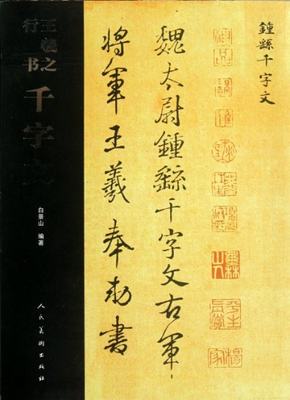 王羲之
行书千字文
白景山 编著
人民美术出版社
鍾繇千字文
魏太尉鍾繇千字文古軍
將軍王羲奉勅書